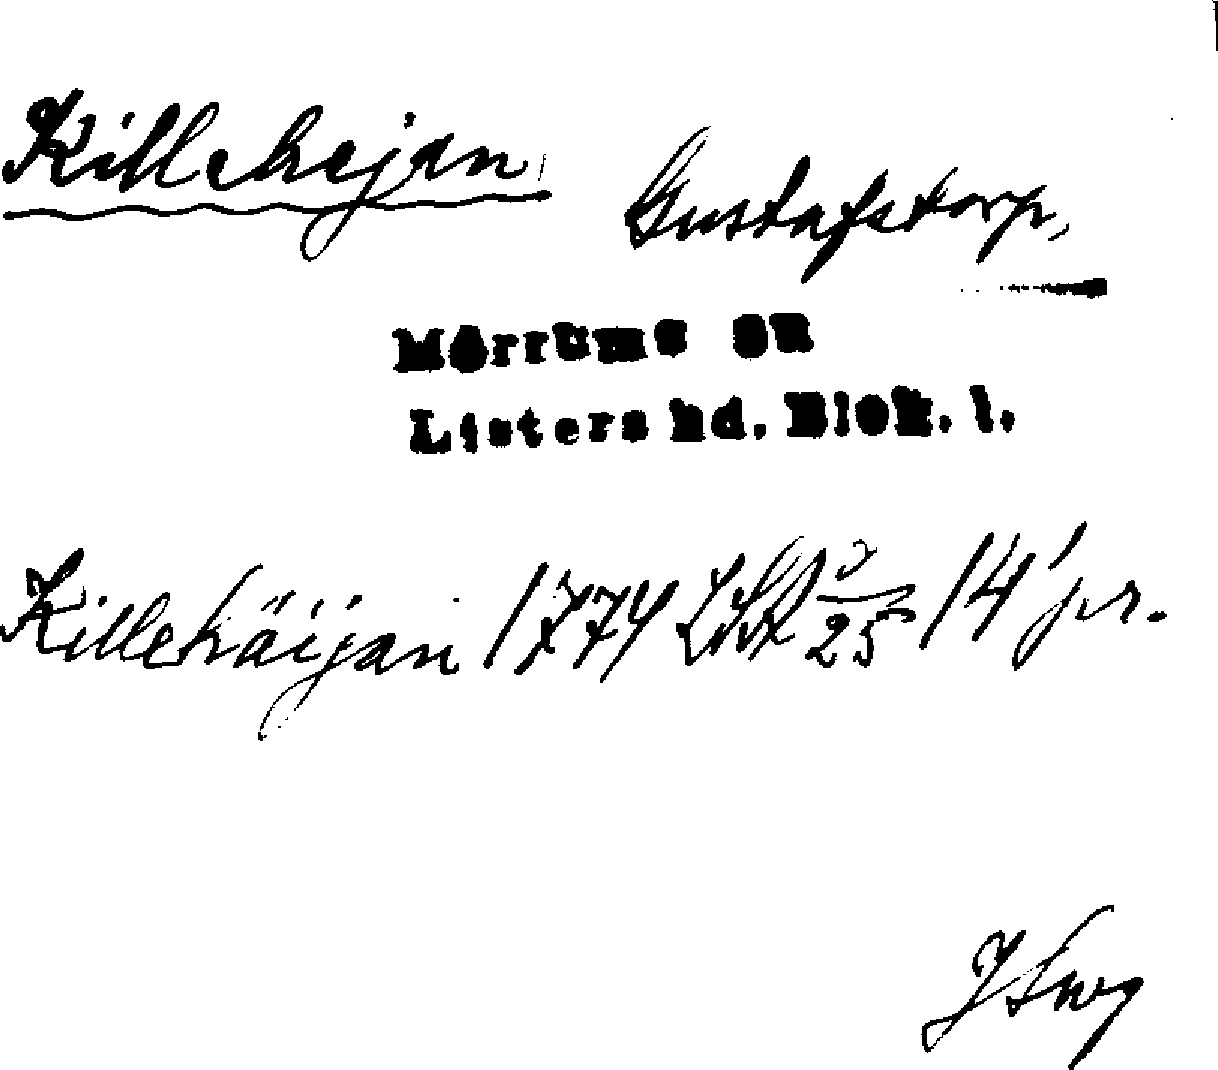 Killehejan, Gustafstorp,
Mörrums sn
Listers hd. Blek. l.
Killehäijan 1774 LSA 25 14 pr.